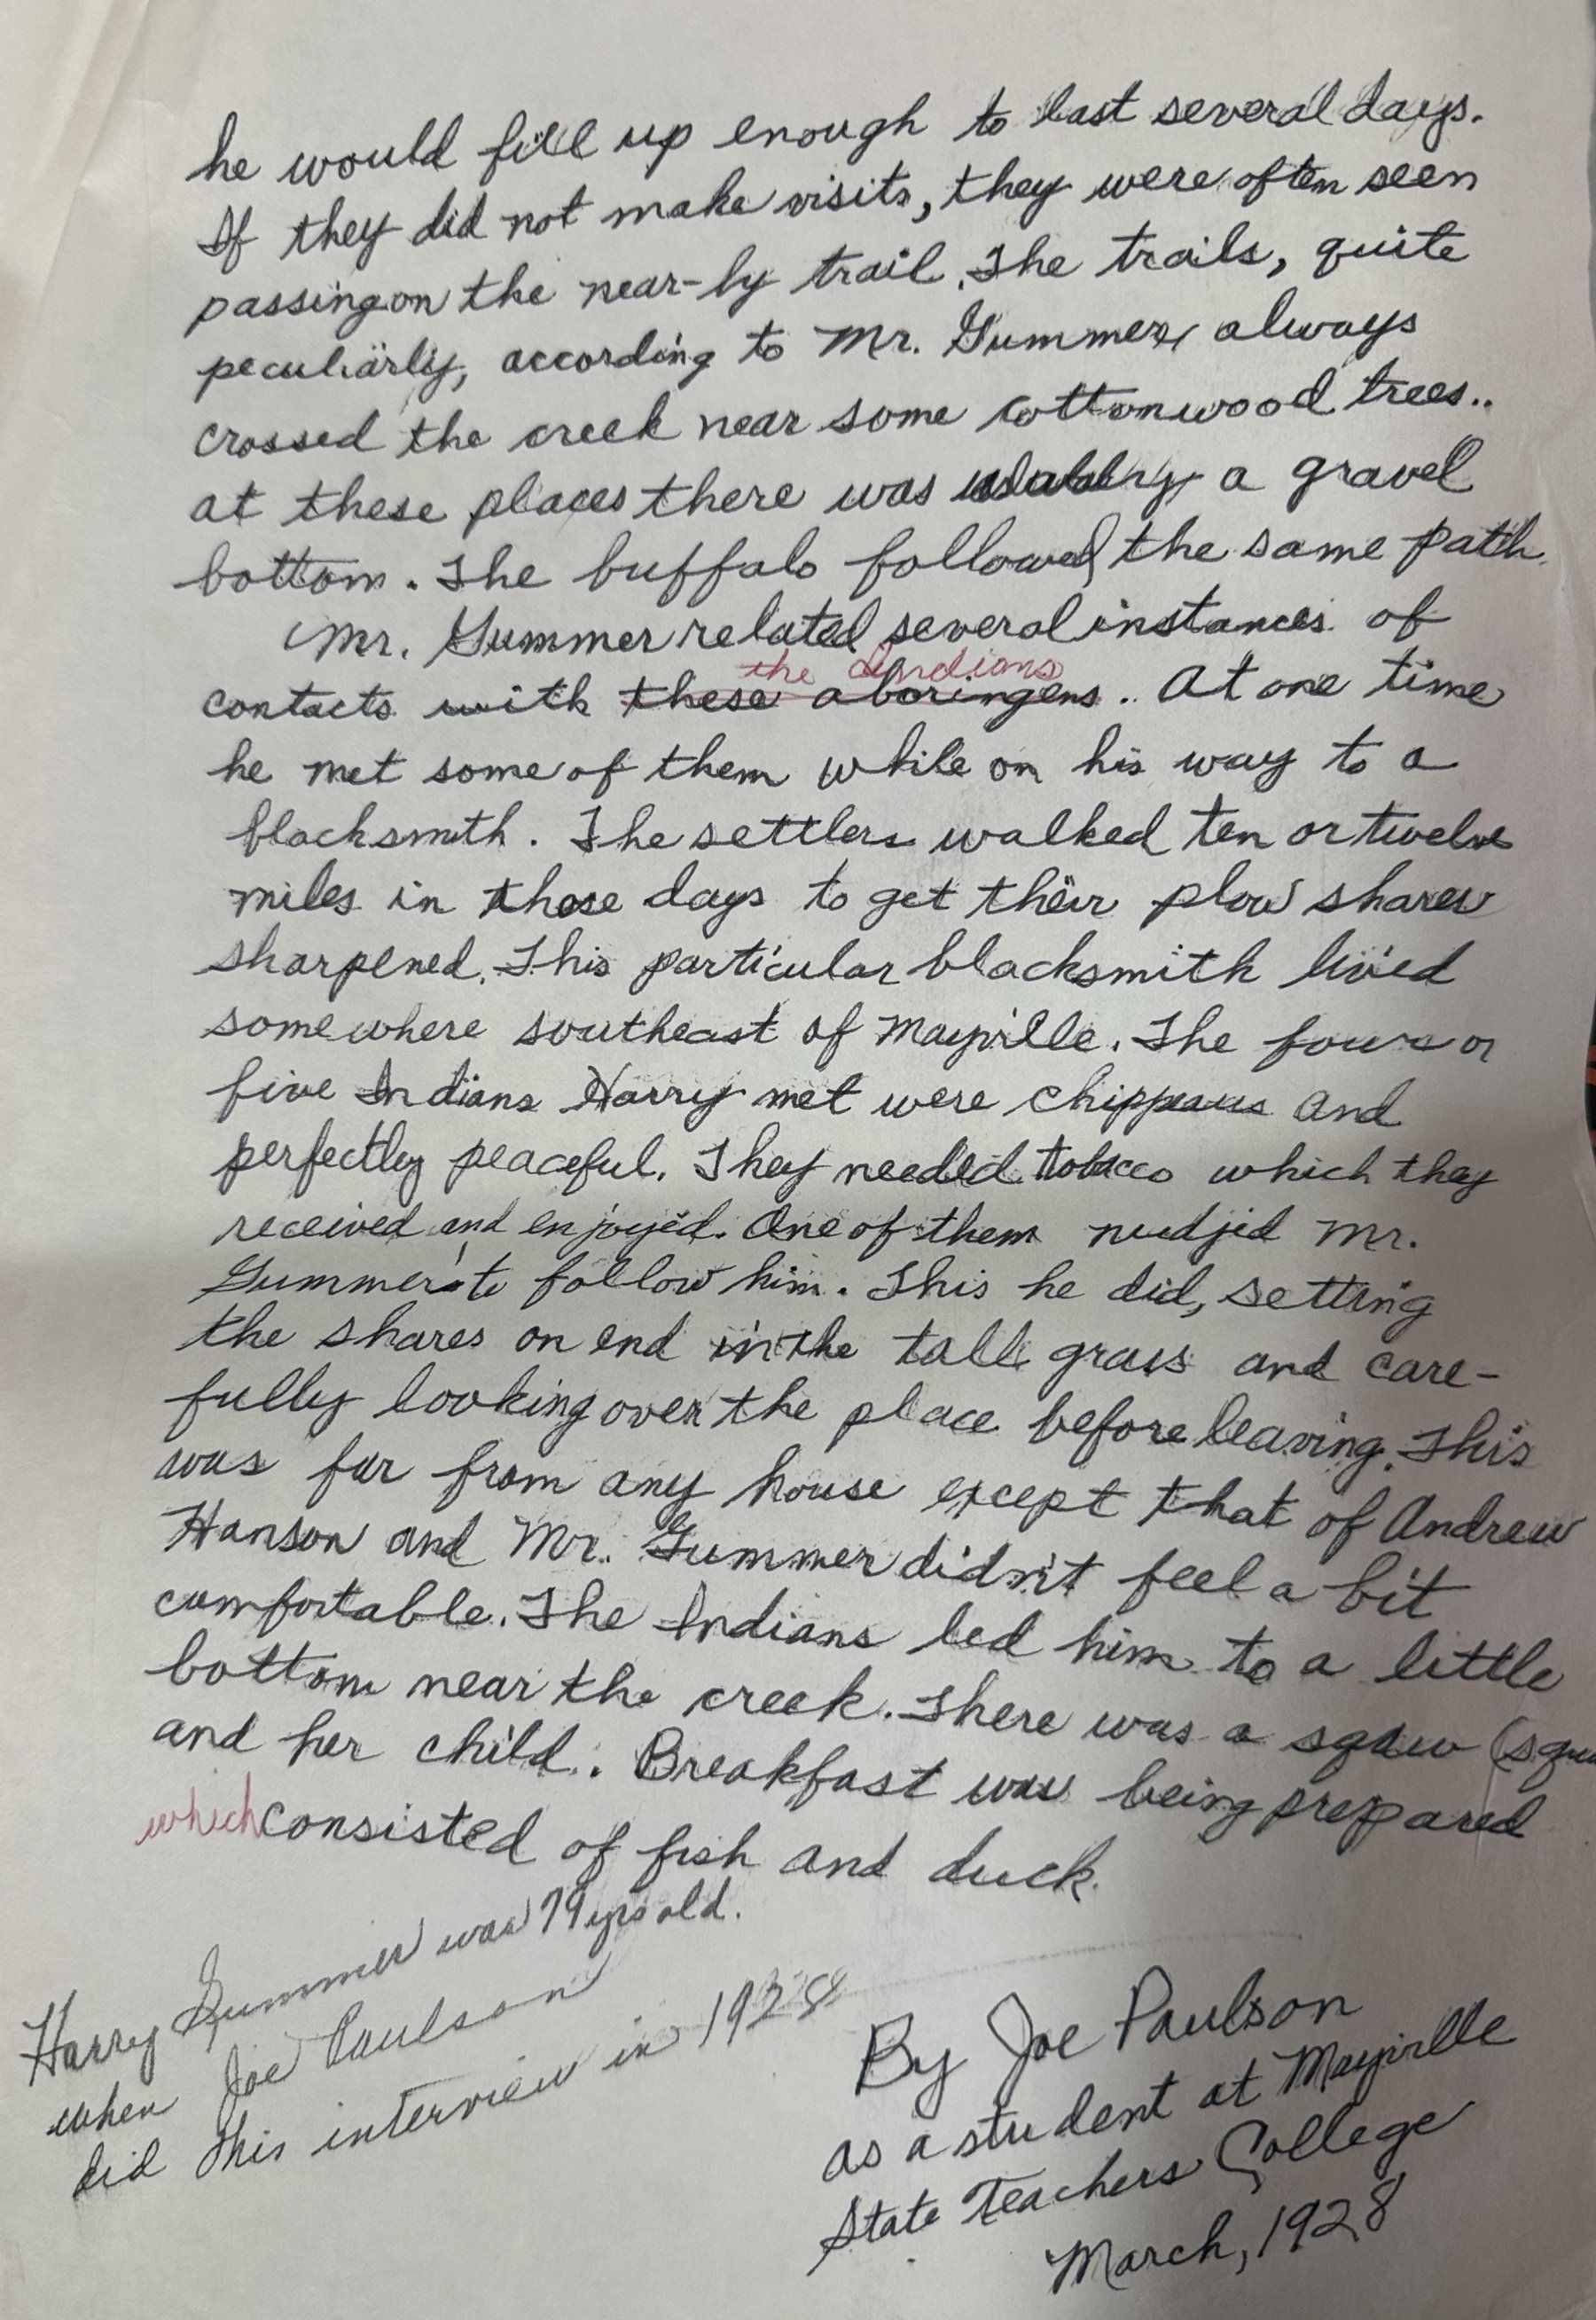 he would fill up enough to last several days.
If they did not make visits, they were often seen
passing on the near-by trail. The trails, quite
peculiarly, according to Mr. Gummer, always
crossed the creek near some cottonwood trees..
at these places there was usually a gravel
bottom. The buffalo followed the same path.
Mr. Gummer related several instances of
the Indians
contacts with these aboringens.. At one time
he met some of them while on his way to a
blacksmith. The settlers walked ten or twelve
miles in those days to get their plow shares
sharpened. This particular blacksmith lived
somewhere southeast of Mayville. The four or
five Indians Harry met were Chippeaus and
perfectley peaceful. They needed tobacco which they
received and enjoyed. One of them nudjed Mr.
Gummer to follow him. This he did, setting
the shares on end in the tall grass and care-
fully looking over the place before leaving. This
was far from any house except that of Andrew
Hanson and Mr. Gummer didn't feel a bit
comfortable. The Indians led him to a little
bottom near the creek. There was a sqaw
and her child. Breakfast was being prepared
which consisted of fish and duck.
Harry Gummer was 79 yrs old.
when Joe Paulson
did this interview in 1928
By Joe Paulson
as a student at Mayville
State Teachers College
March, 1928